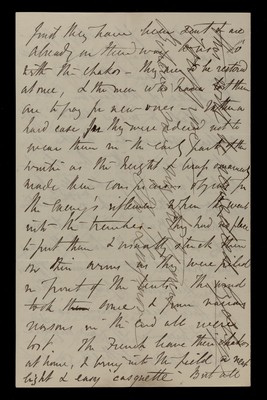 trust they have been sent & are
already on their way to us. So
with the shakos - they are to be restored
at once, & the men who have lost them
are to pay for new ones -- Rather a
hard case for they were ordered not to
wear them in the early part of the
winter as the height & brass ornaments
made them conspicuous objects for
the enemy's riflemen when they went
into the trenches. They had no place
to put them & usually stuck them
on their arms as they were piled
in front of the tents. The wind
took them some & from various
reasons in the end all were
lost. The French leave their shakos
at home, & bring into the field a very
light & easy casquette. But all